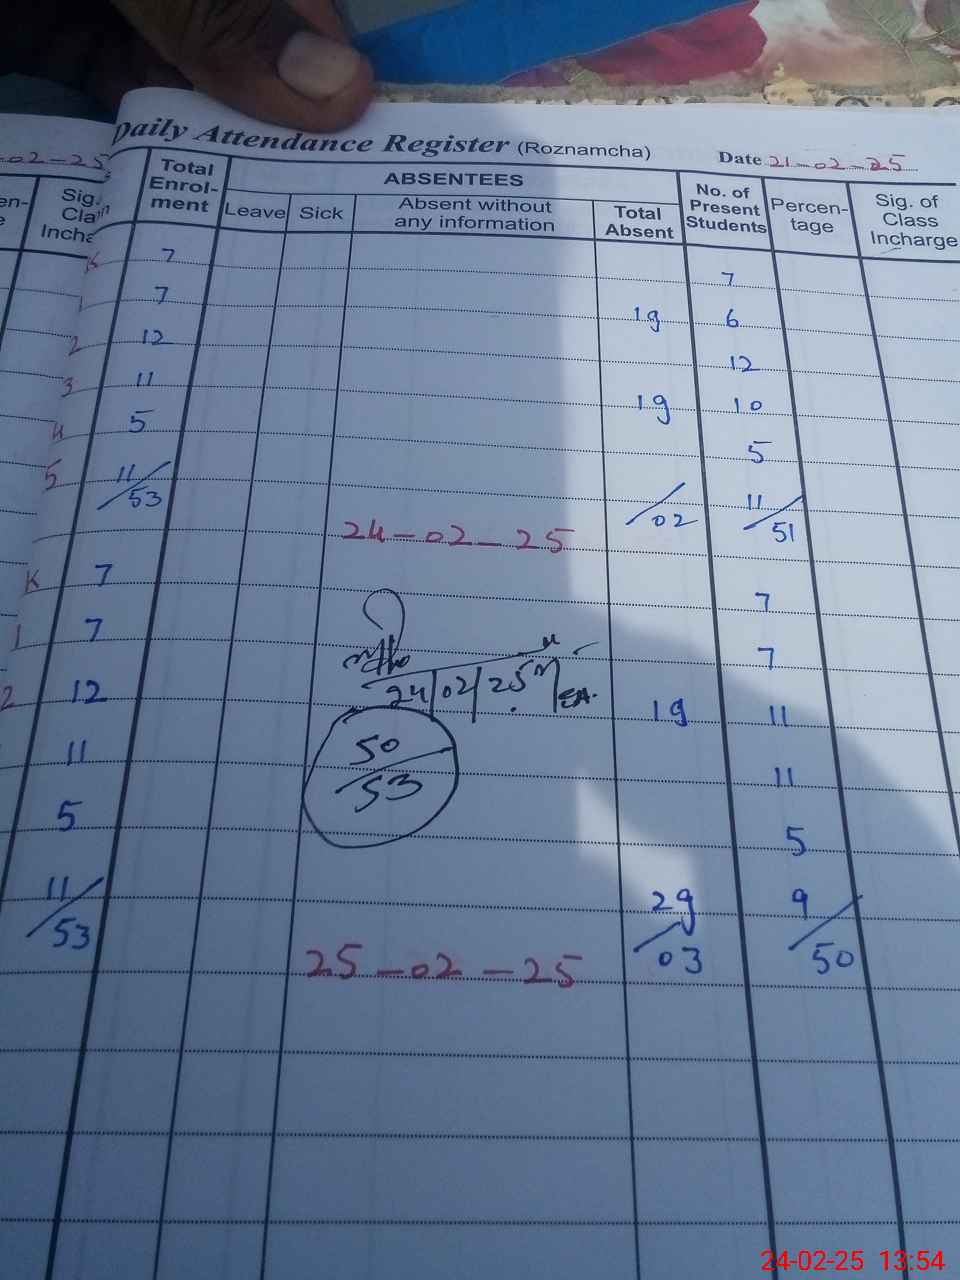 Daily Attendance Register (Roznamcha) Date 21-02-25
-02-25
Total Enrol-ment ABSENTEES No. of Present Students Percen-tage Sig. of Class Incharge
Leave Sick Absent without any information Total Absent
en- Sig. Cla Incha
K 7 7
1 7 1g 6
2 12 12
3 11 1g 10
4 5 5
5 11/53 /02 11/51
24-02-25
K 7 7
1 7 7
2 12 1g 11
11 11
5 5
24/02/25
50/53
11/53 2g/03 9/50
25-02-25
24-02-25 13:54